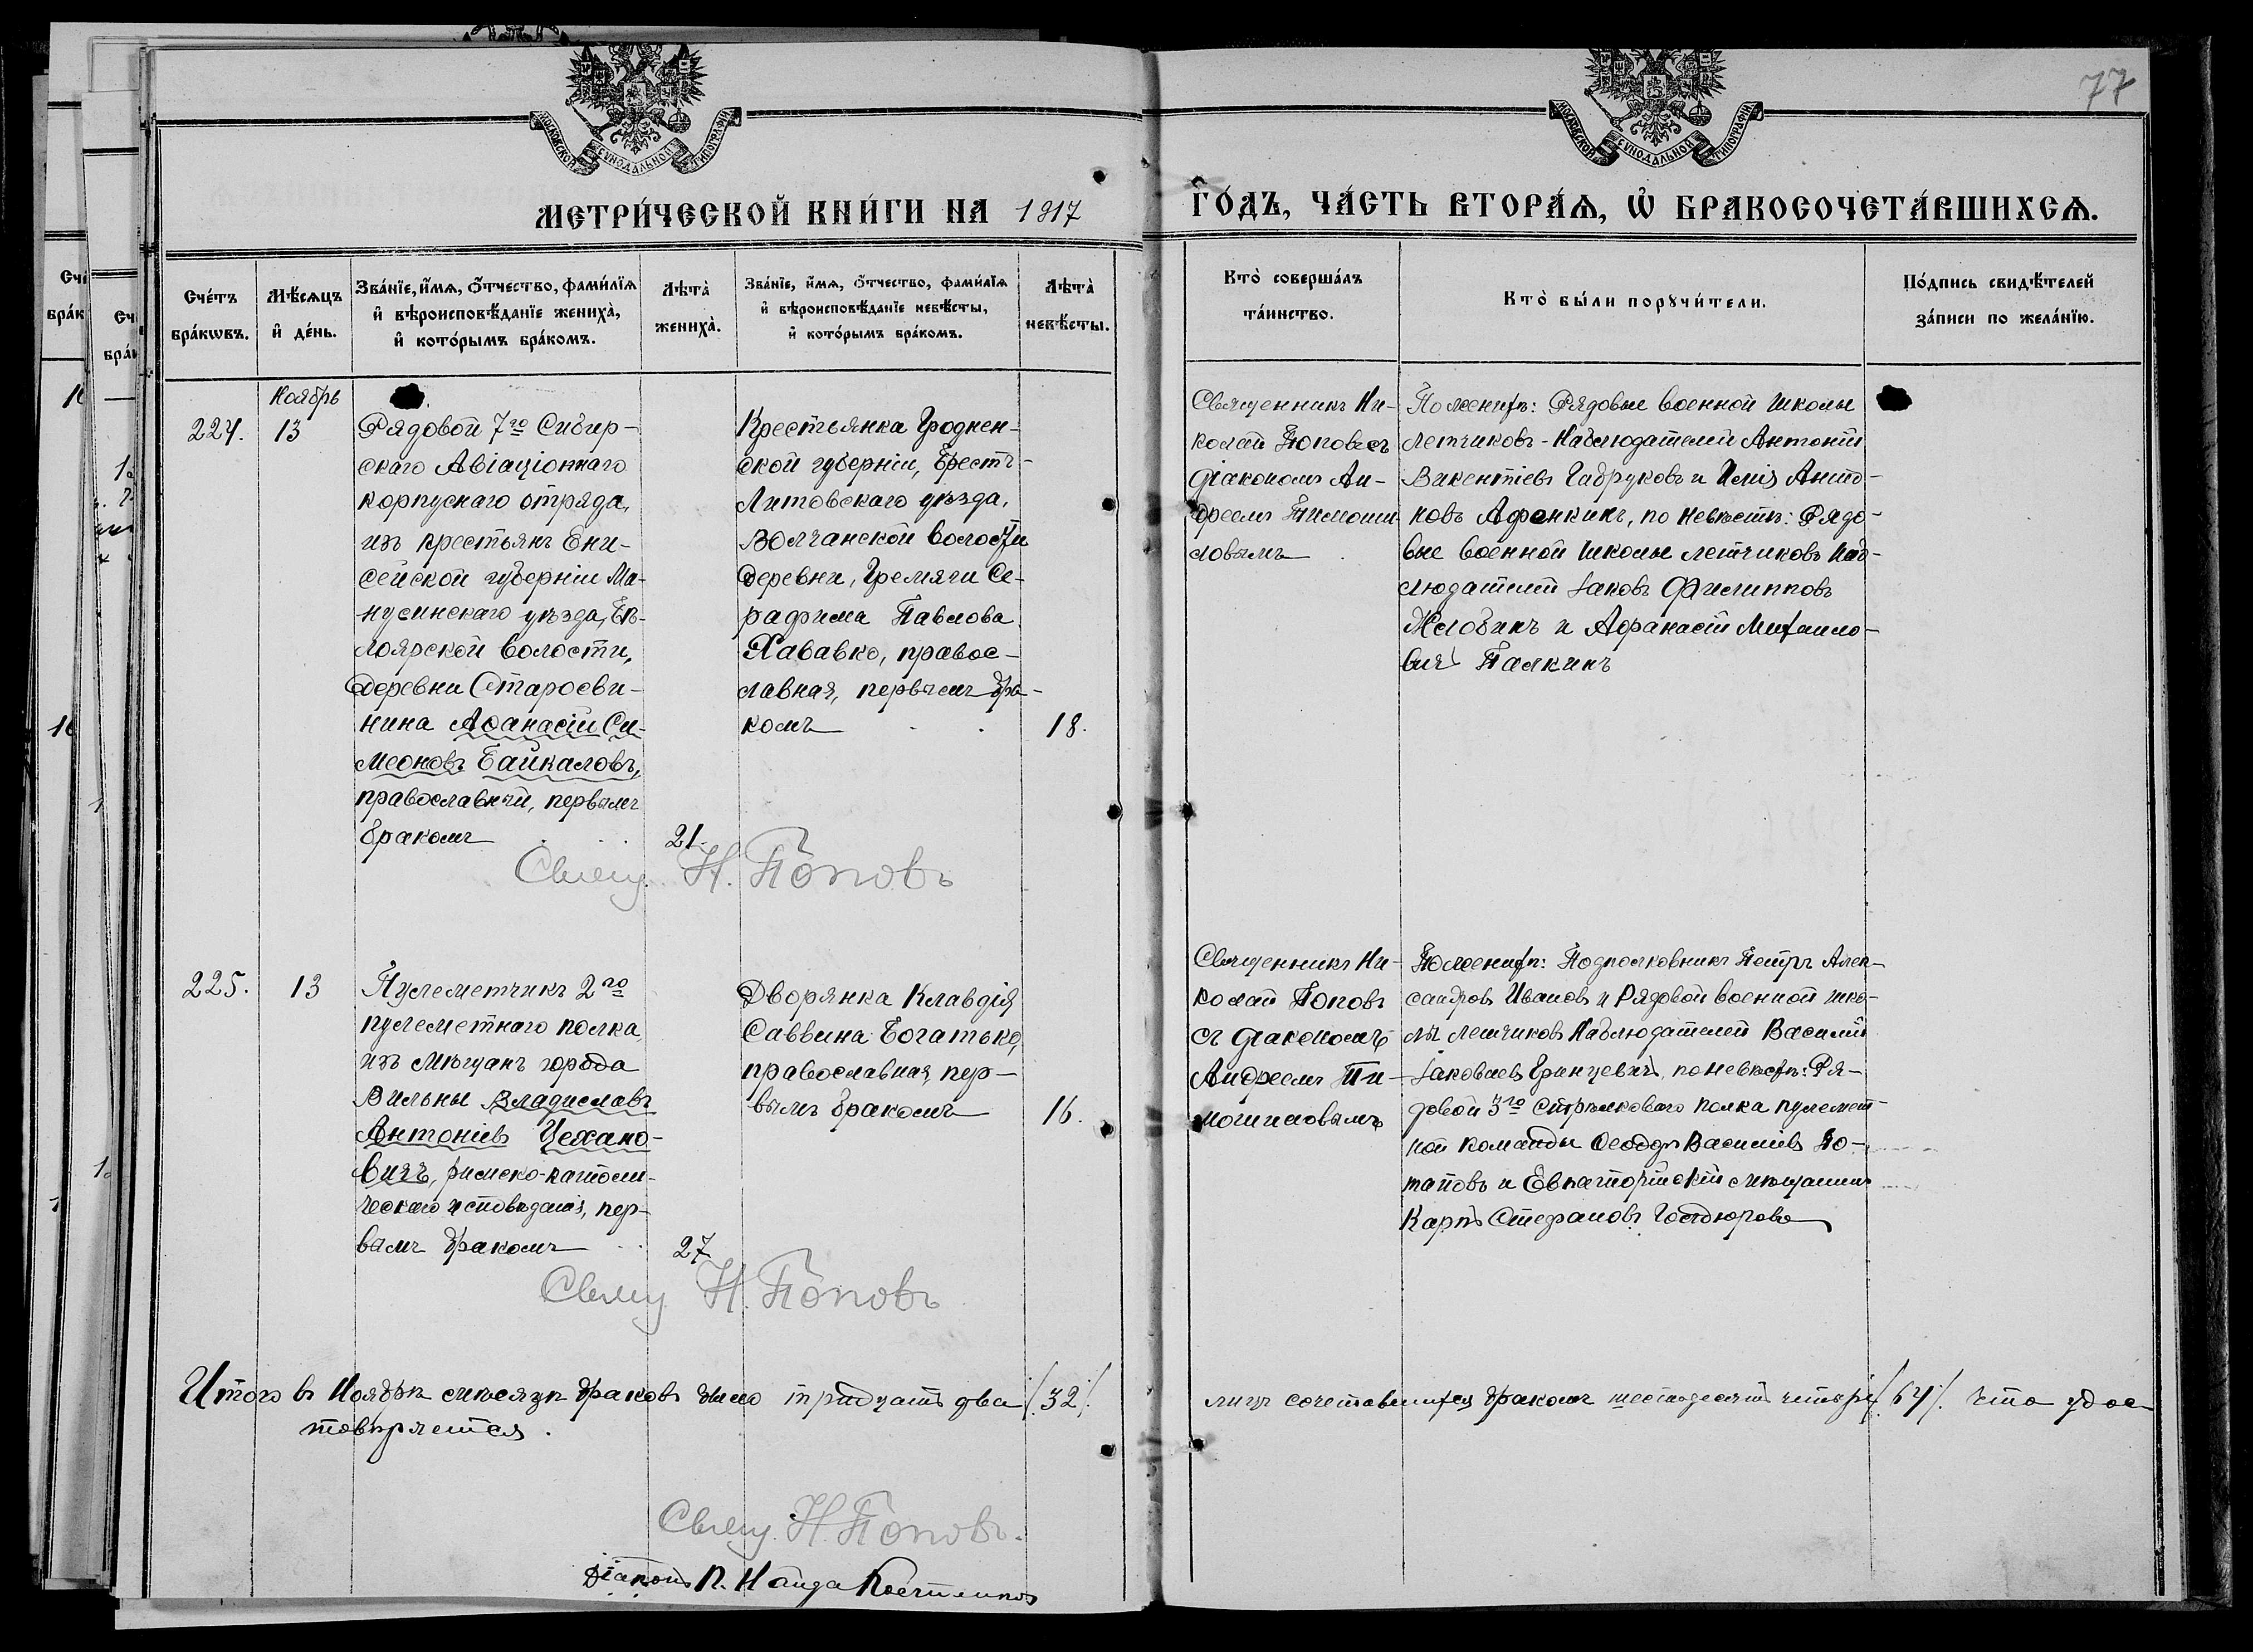 77
МОСКОВСКОЙ СѴНОДАЛЬНОЙ ТИПОГРАФІИ
МОСКОВСКОЙ СѴНОДАЛЬНОЙ ТИПОГРАФІИ
МЕТРИ́ЧЕСКОЙ КНИ́ГИ НА 1917
ГО́ДЪ, ЧА́СТЬ ВТОРА́Ѧ, Ѡ҆ БРАКОСОЧЕТА́ВШИХСѦ.
Сче́тъ
бра́кѡвъ.
Мѣ́сѧцъ
и҆ де́нь.
Зва́нїе, и҆́мѧ, ѻ҆́тчество, фами́лїѧ
и҆ вѣроисповѣ́данїе жениха̀,
и҆ кото́рымъ бра́комъ.
Лѣта̀
жениха̀.
Зва́нїе, и҆́мѧ, ѻ҆́тчество, фами́лїѧ
и҆ вѣроисповѣ́данїе невѣ́сты,
и҆ кото́рымъ бра́комъ.
Лѣта̀
невѣ́сты.
Кто̀ соверша́лъ
та́инство.
Кто̀ бы́ли порꙋчи́тели.
По́дпись свидѣ́телей
за́писи по жела́нїю.
Ноябрь
224.
13
Рядовой 7го Сибир-
скаго Авіаціоннаго
корпуснаго отряда,
изъ крестьянъ Ени-
сейской губерніи Ми-
нусинскаго уѣзда, Бѣ-
лоярской волости,
деревни Староеви-
нина Аѳанасій Си-
меоновъ Байкаловъ,
православный, первымъ
бракомъ
21.
Крестьянка Гроднен-
ской губерніи, Брестъ-
Литовскаго уѣзда,
Волчанской волости
деревни, Гремячи Се-
рафима Павлова
Хававко, правос-
лавная, первымъ бра-
комъ
18.
Священникъ Ни-
колай Поповъ съ
діакономъ Ан-
дреемъ Тимоши-
ловымъ
По женихѣ: Рядовые военной школы
летчиковъ-Наблюдателей Антоній
Викентіевъ Габруковъ и Илія Анто-
новъ Афонкинъ, по невѣстѣ: Рядо-
вые военной школы летчиковъ Наб-
людателей Іаковъ Филипповъ
Жлобинъ и Афанасій Михаило-
вичъ Палкинъ
Свящ. Н. Поповъ
225.
13
Пулеметчикъ 2го
пулеметнаго полка,
изъ мѣщанъ города
Вильны Владиславъ
Антоніевъ Цехано-
вичъ, римско-католи-
ческаго исповѣданія, пер-
вымъ бракомъ
27
Дворянка Клавдія
Саввина Богатько,
православная, пер-
вымъ бракомъ
16.
Священникъ Ни-
колай Поповъ
съ діакономъ
Андреемъ Ти-
мошиловымъ
По женихѣ: Подполковникъ Петръ Алек-
сандровъ Ивановъ и Рядовой военной шко-
лы летчиковъ Наблюдателей Василій
Іаковлевъ Гринцевичъ, по невѣстѣ: Ря-
довой 3го Стрѣлковаго полка пулемет-
ной команды Ѳеодоръ Василіевъ По-
таповъ и Евпаторійскій мѣщанинъ
Карпъ Стефановъ
Свящ Н. Поповъ
Итого въ Ноябрѣ мѣсяцѣ браковъ было тридцать два /32/
лицъ сочетавшихся бракомъ шестьдесятъ четыре /64/. что удос-
товѣряется.
Свящ. Н. Поповъ.
Діаконъ П.